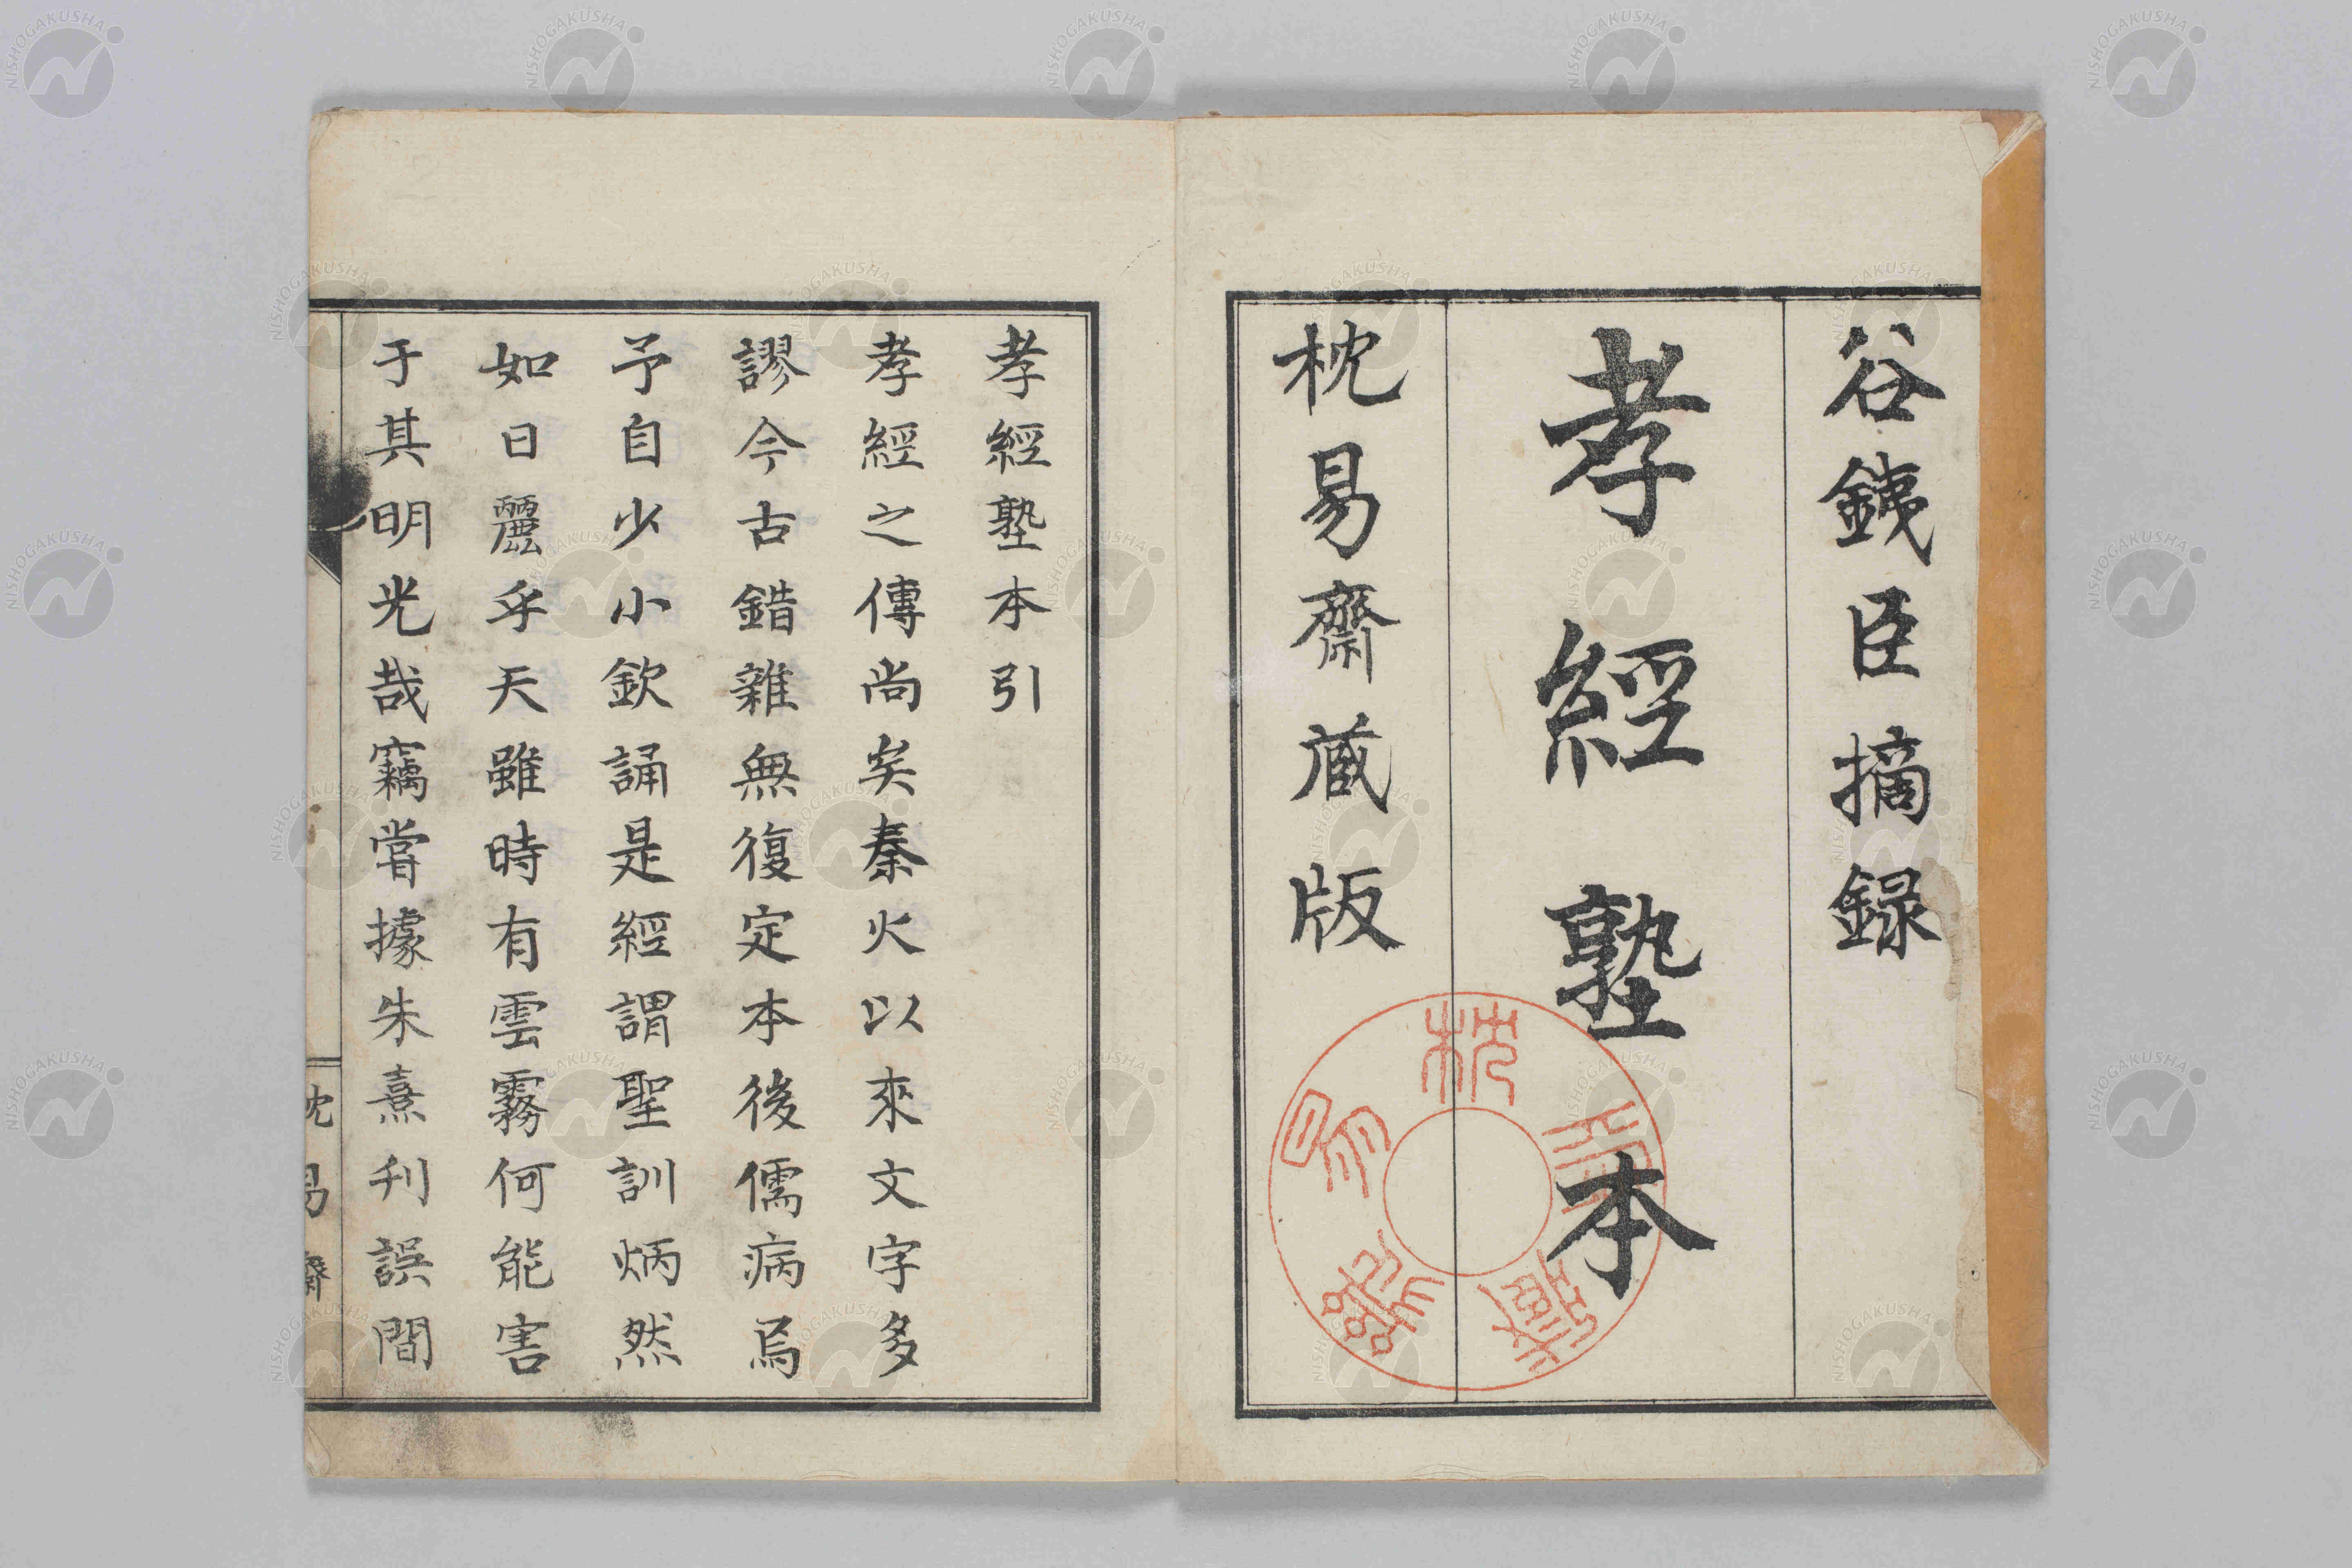 谷銕臣摘録
孝經塾本
枕易齋蔵版
枕易齋藏
孝經塾本引
孝經之傳尚矣秦火以來文字多
謬今古錯雜無復定本後儒病焉
予自少小欽誦是經謂聖訓炳然
如日麗乎天雖時有雲霧何能害
于其明光哉竊嘗據朱熹刋誤間
枕易齋
NISHOGAKUSHA